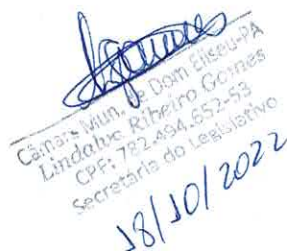 Câmara Mun. de Dom Eliseu-PA
Lindalva Ribeiro Gomes
CPF: 782.494.652-53
Secretária do Legislativo
18/10/2022